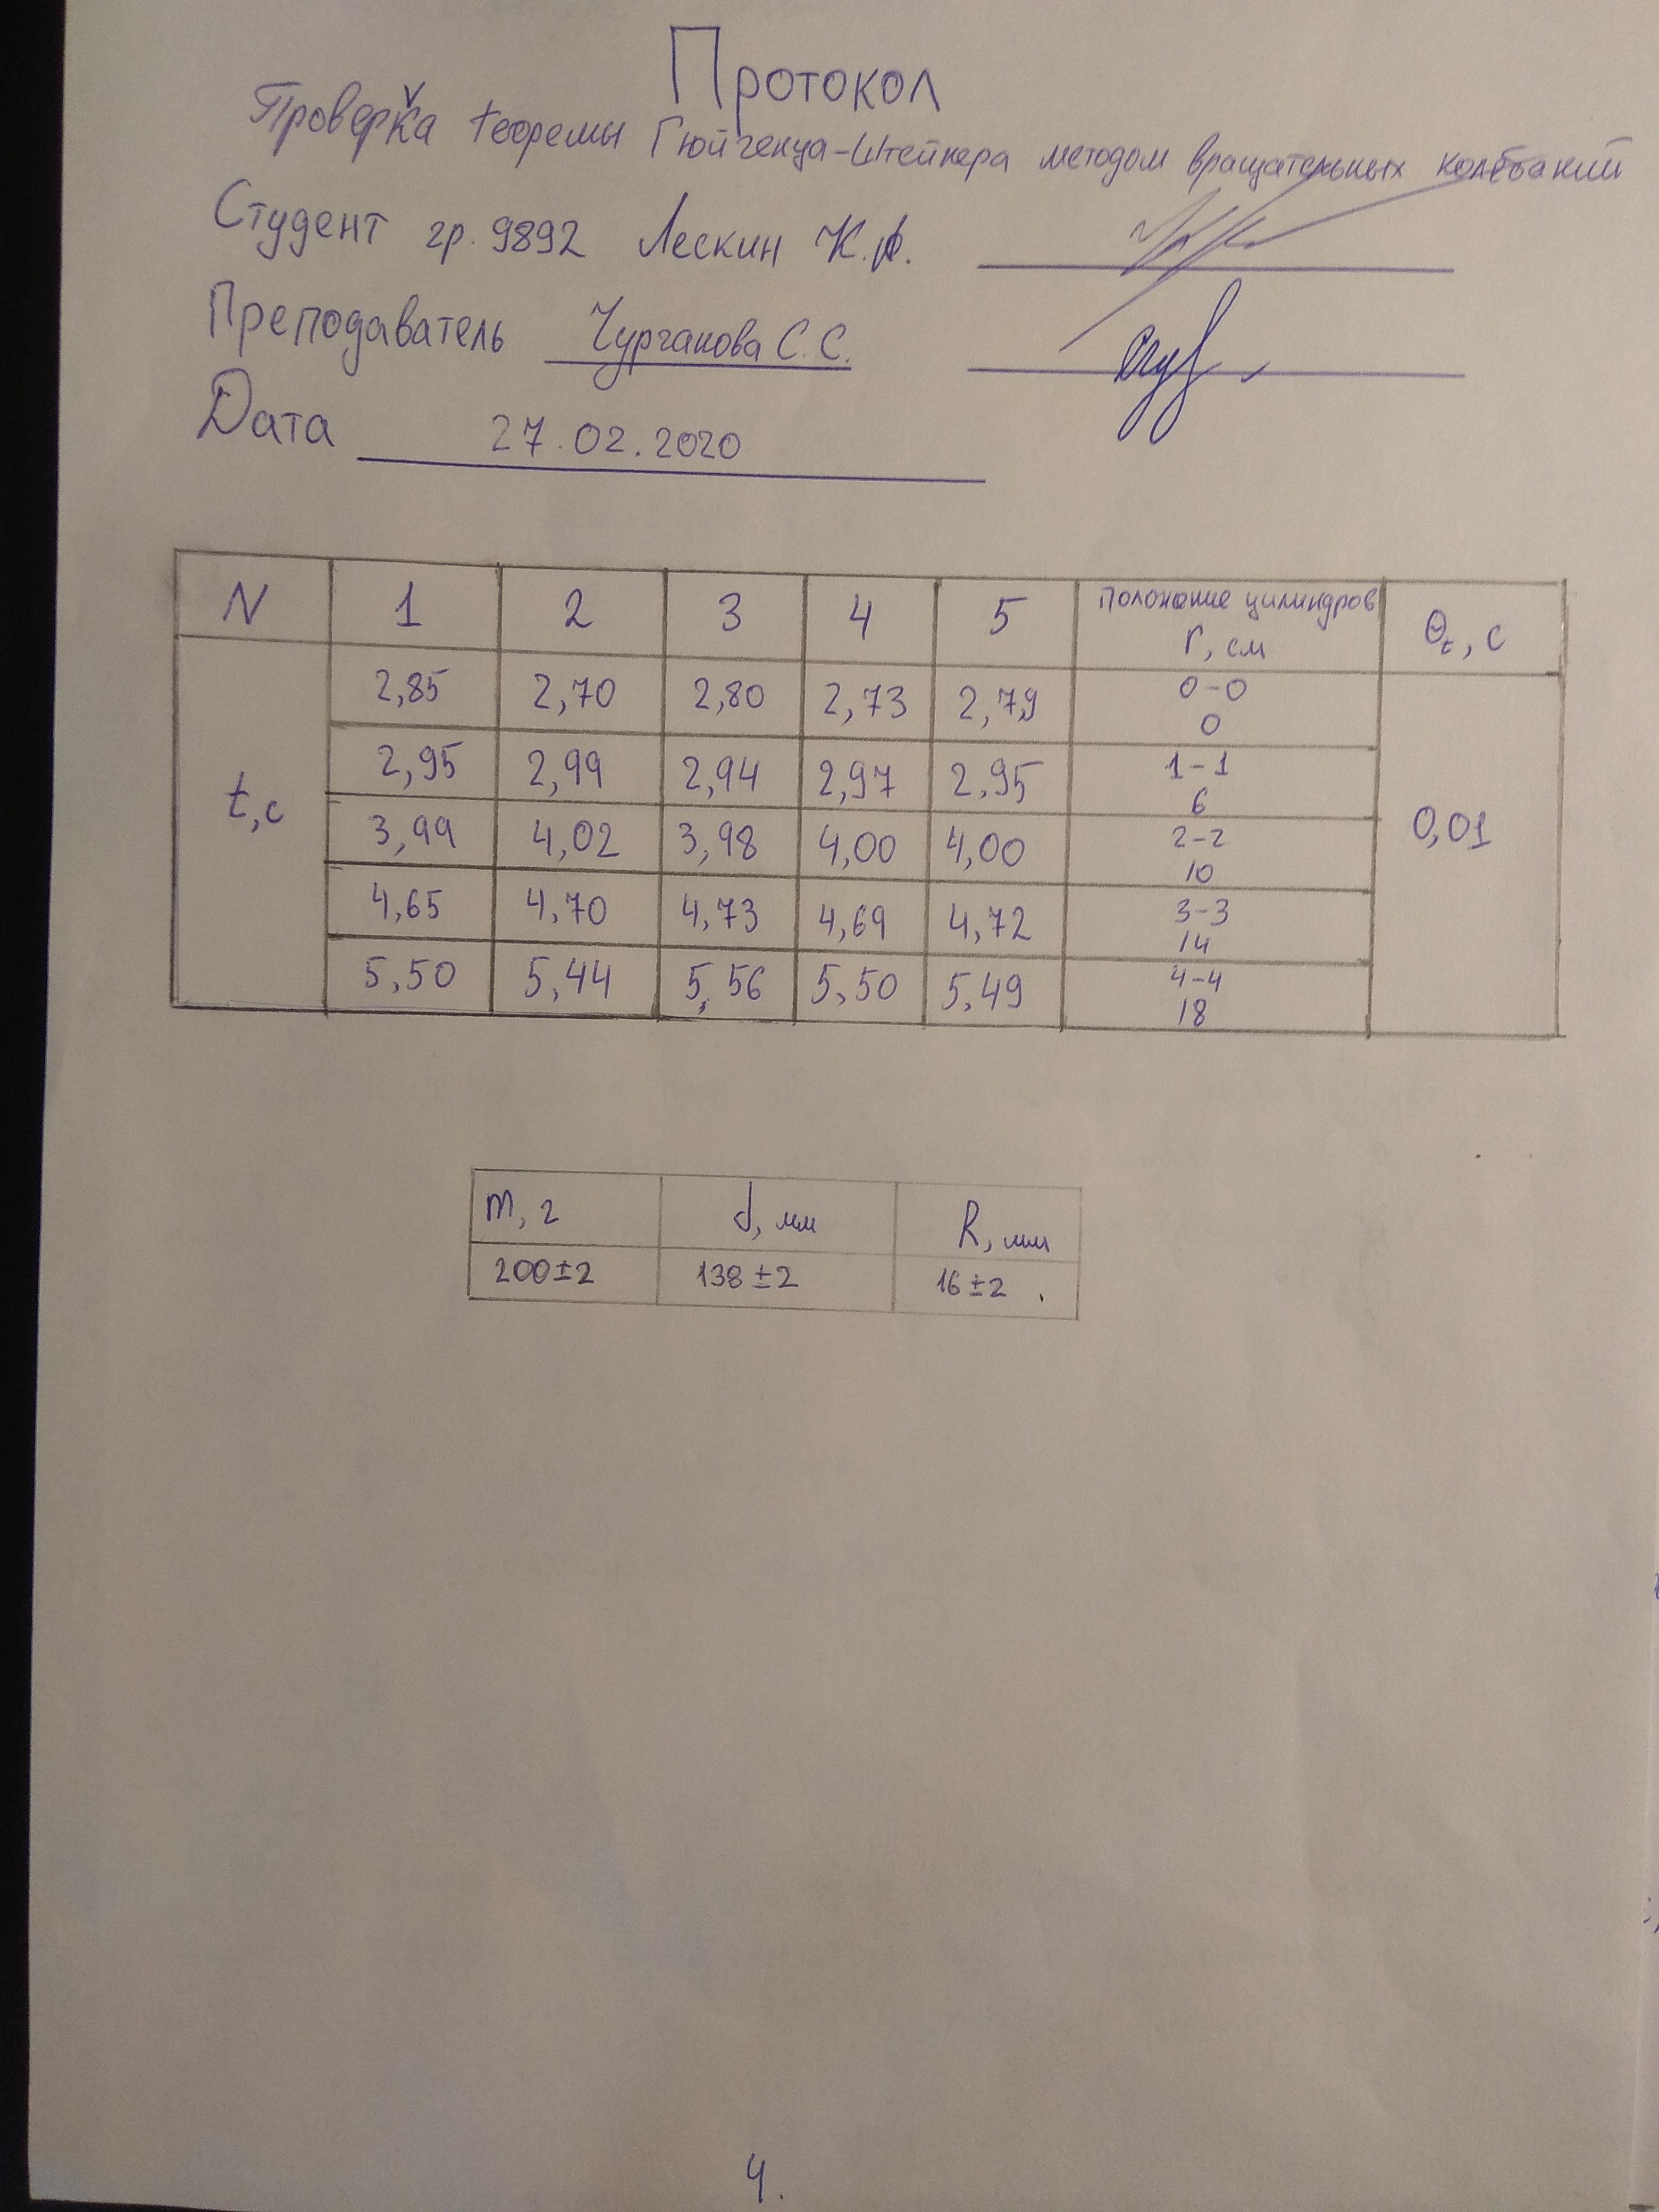 Протокол
Проверка теоремы Гюйгенца-Штейнера методом вращательных колебаний
Студент гр. 9892 Лескин К.А.
Преподаватель Чурганова С.С.
Дата 27.02.2020
N 1 2 3 4 5 Положение цилиндров, r, см θt, с
t,с
2,85 2,70 2,80 2,73 2,79 0-0 0
2,95 2,99 2,94 2,97 2,95 1-1 6
3,99 4,02 3,98 4,00 4,00 2-2 10
0,01
4,65 4,70 4,73 4,69 4,72 3-3 14
5,50 5,44 5,56 5,50 5,49 4-4 18
m, г d, мм R, мм
200±2 138±2 16±2
4.